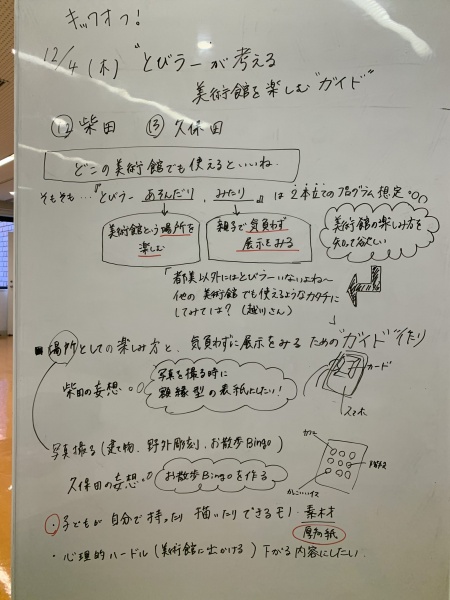 キックオフ!
12/4(木) "とびラー"が考える
美術館を楽しむ"ガイド"
⑫ 柴田 ⑬ 久保田
どこの美術館でも使えるといいね.
そもそも…『とびラー あそんだり、みたり』は 2本立てのプログラム想定
美術館という場所を
楽しむ
親子で気負わず
展示をみる
美術館の楽しみ方を
知って欲しい
都美以外にはとびラーいないよね〜
他の美術館でも使えるようなカタチに
してみては?(越川さん)
■場所としての楽しみ方と、気負わずに展示をみる ための"ガイド"作り
柴田の妄想
写真を撮る時に
額縁型の表紙にしたい!
カード
スマホ
写真撮る(建物、野外彫刻、お散歩Bingo)
久保田の妄想
お散歩Bingoを作る
かっこいいイス
・子どもが自分で持ったり 描いたりできるモノ・素材
厚紙
・心理的ハードル(美術館に出かける)下がる内容にしたい.